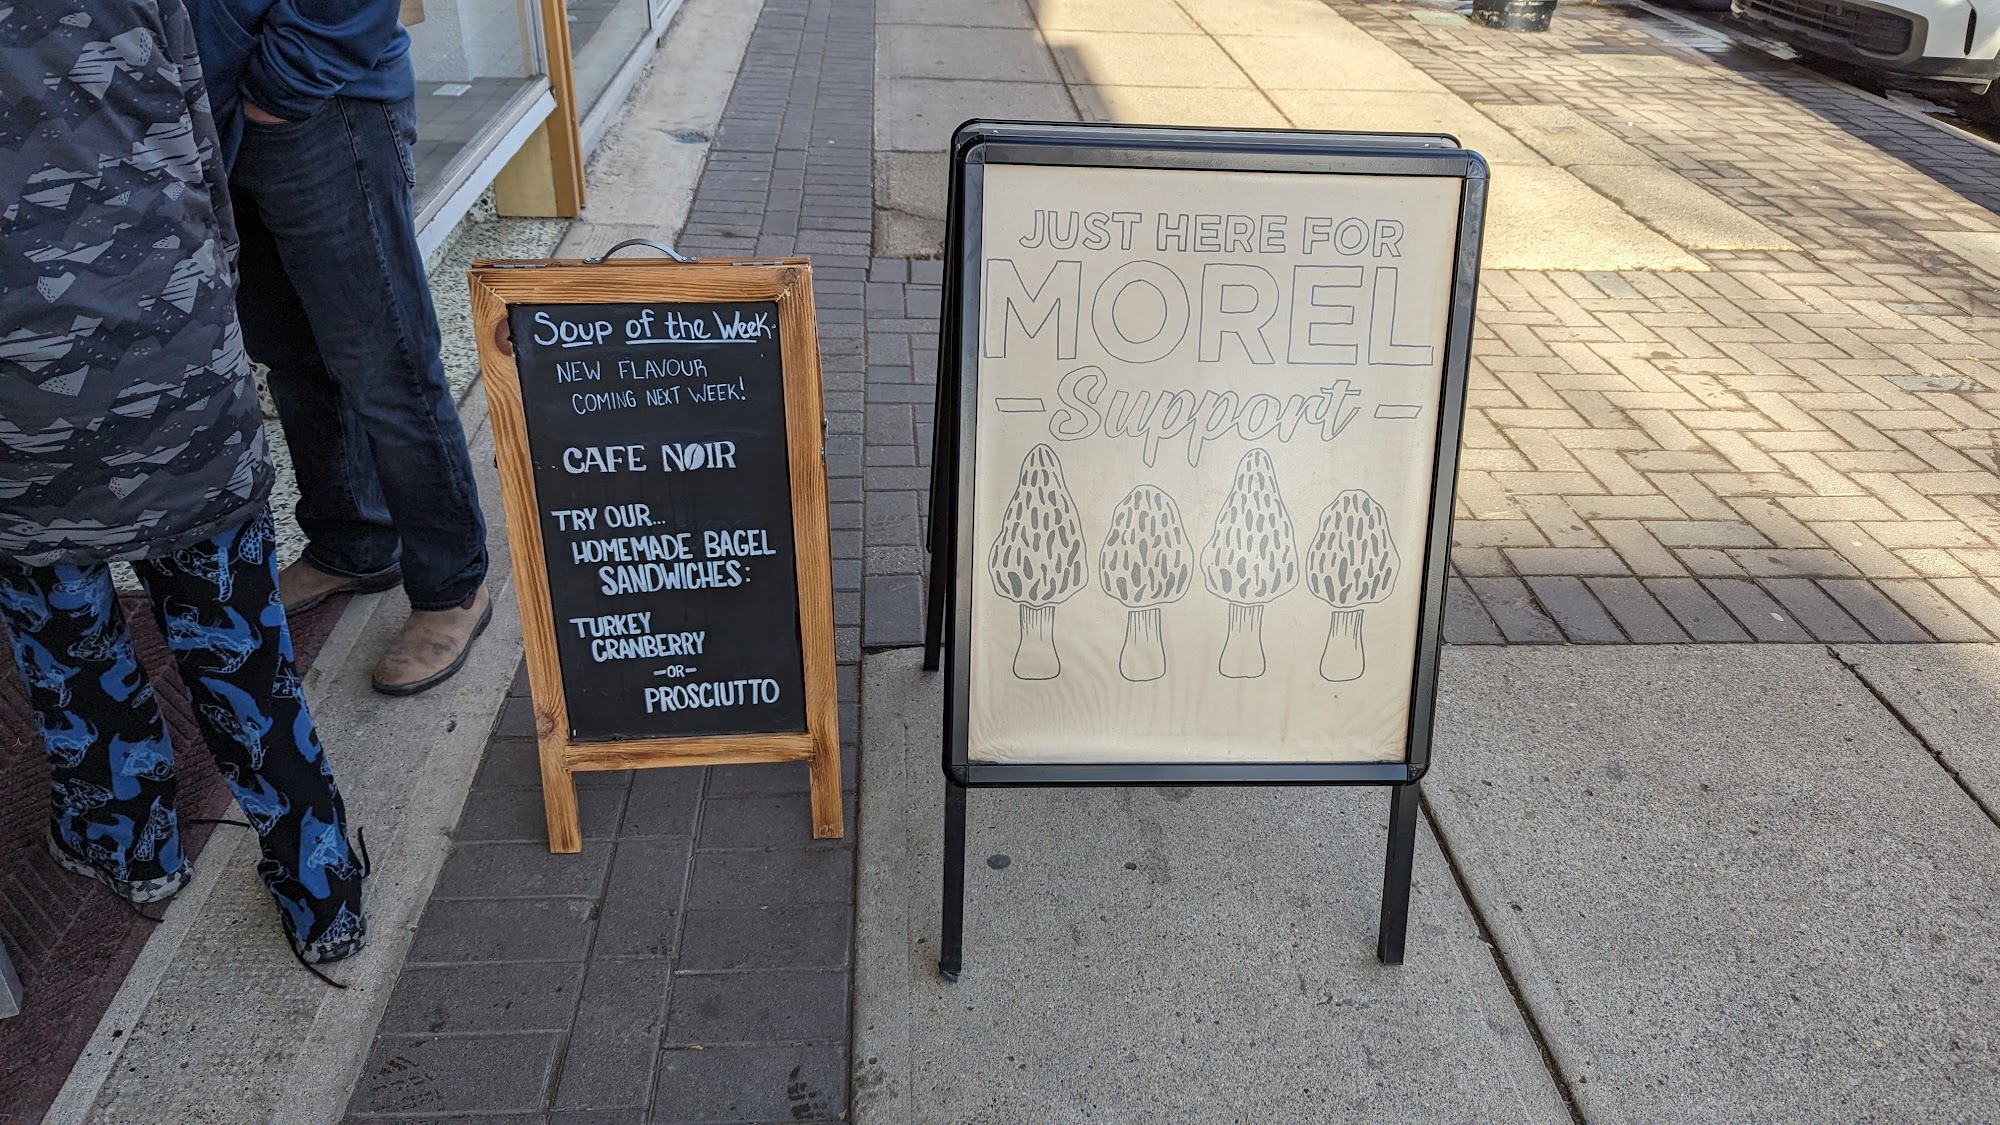 Soup of the Week
NEW FLAVOUR
COMING NEXT WEEK!
CAFE NOIR
TRY OUR...
HOMEMADE BAGEL
SANDWICHES:
TURKEY
CRANBERRY
-OR-
PROSCIUTTO
JUST HERE FOR
MOREL
- Support -